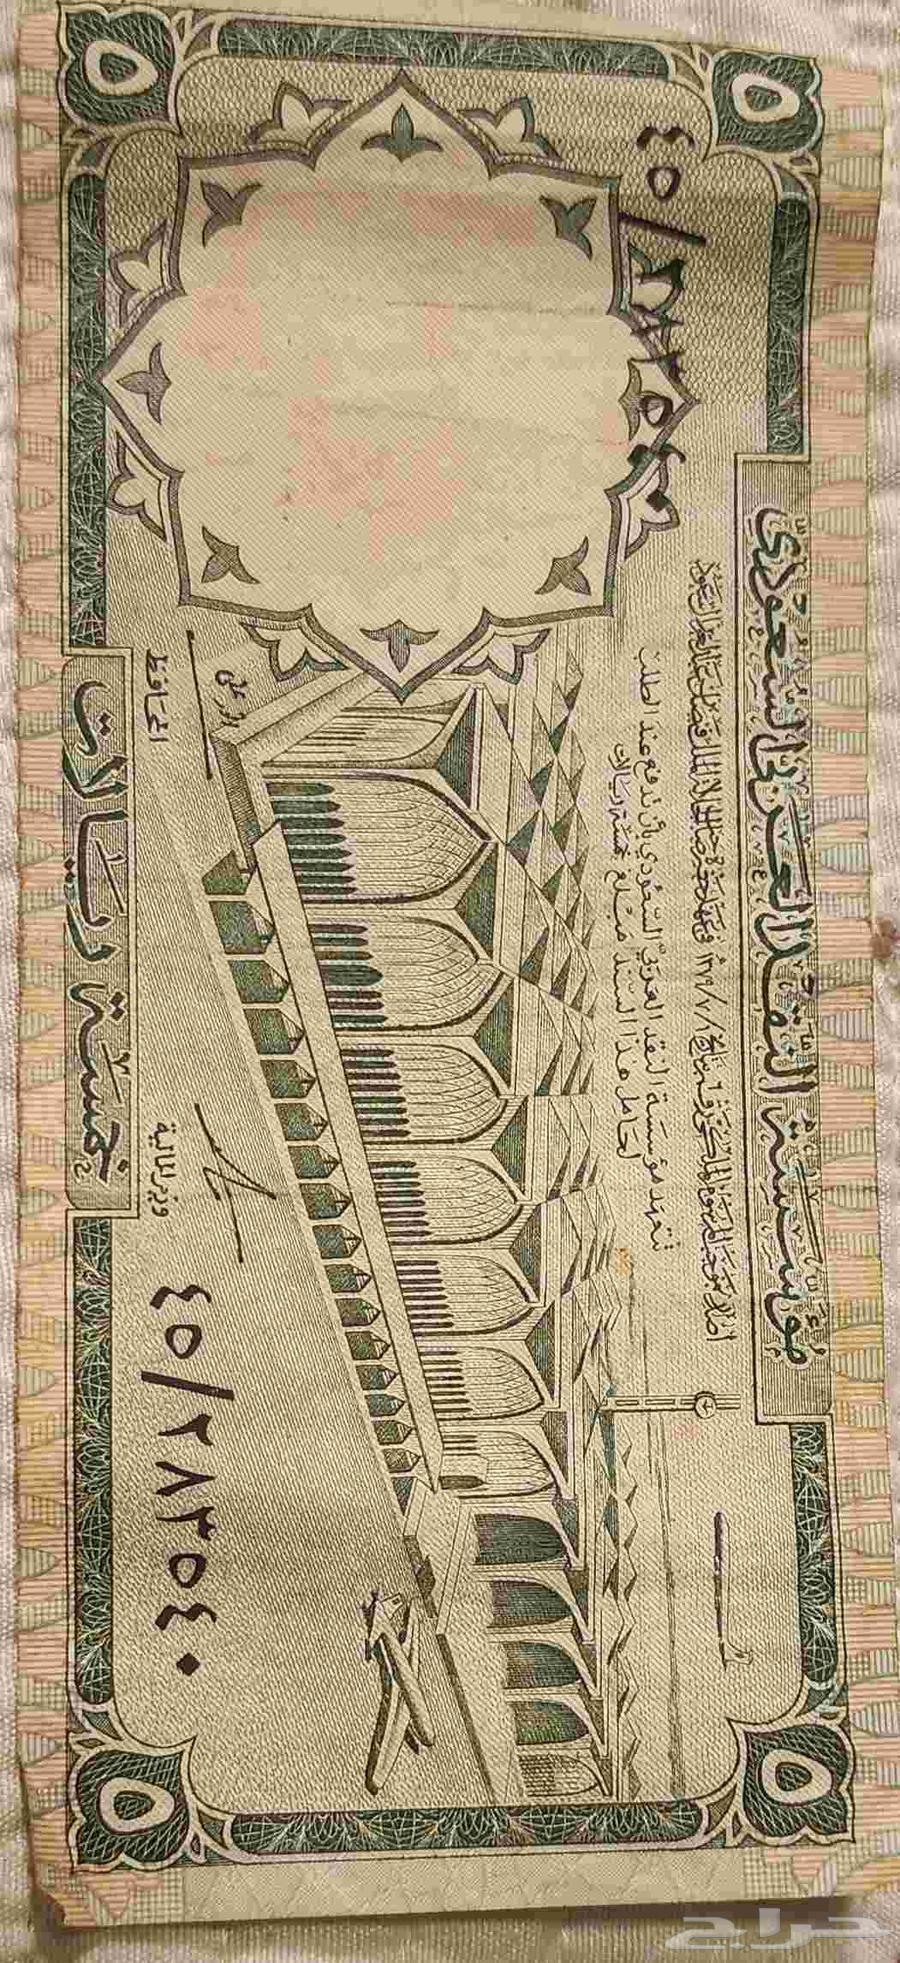 مؤسسة النقد العربي السعودي
تتعهد مؤسسة النقد العربي السعودي بأن تدفع عند الطلب
لحامل هذا السند مبلغ خمسة ريالات
٤٥/٢٨٣٥٤٠
٤٥/٢٨٣٥٤٠
وزير المالية
المحافظ
خمسة ريالات
٥
٥
٥
٥
حراج